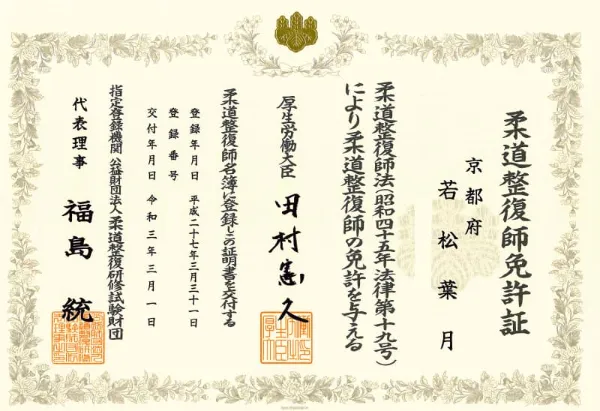 柔道整復師免許証
京都府
若松葉月
柔道整復師法(昭和四十五年法律第十九号)
により柔道整復師の免許を与える
厚生労働大臣
田村憲久
柔道整復師名簿に登録しこの証明書を交付する
登録年月日 平成二十七年三月三十一日
登録番号
交付年月日 令和三年三月一日
指定登録機関 公益財団法人 柔道整復研修試験財団
代表理事 福島統